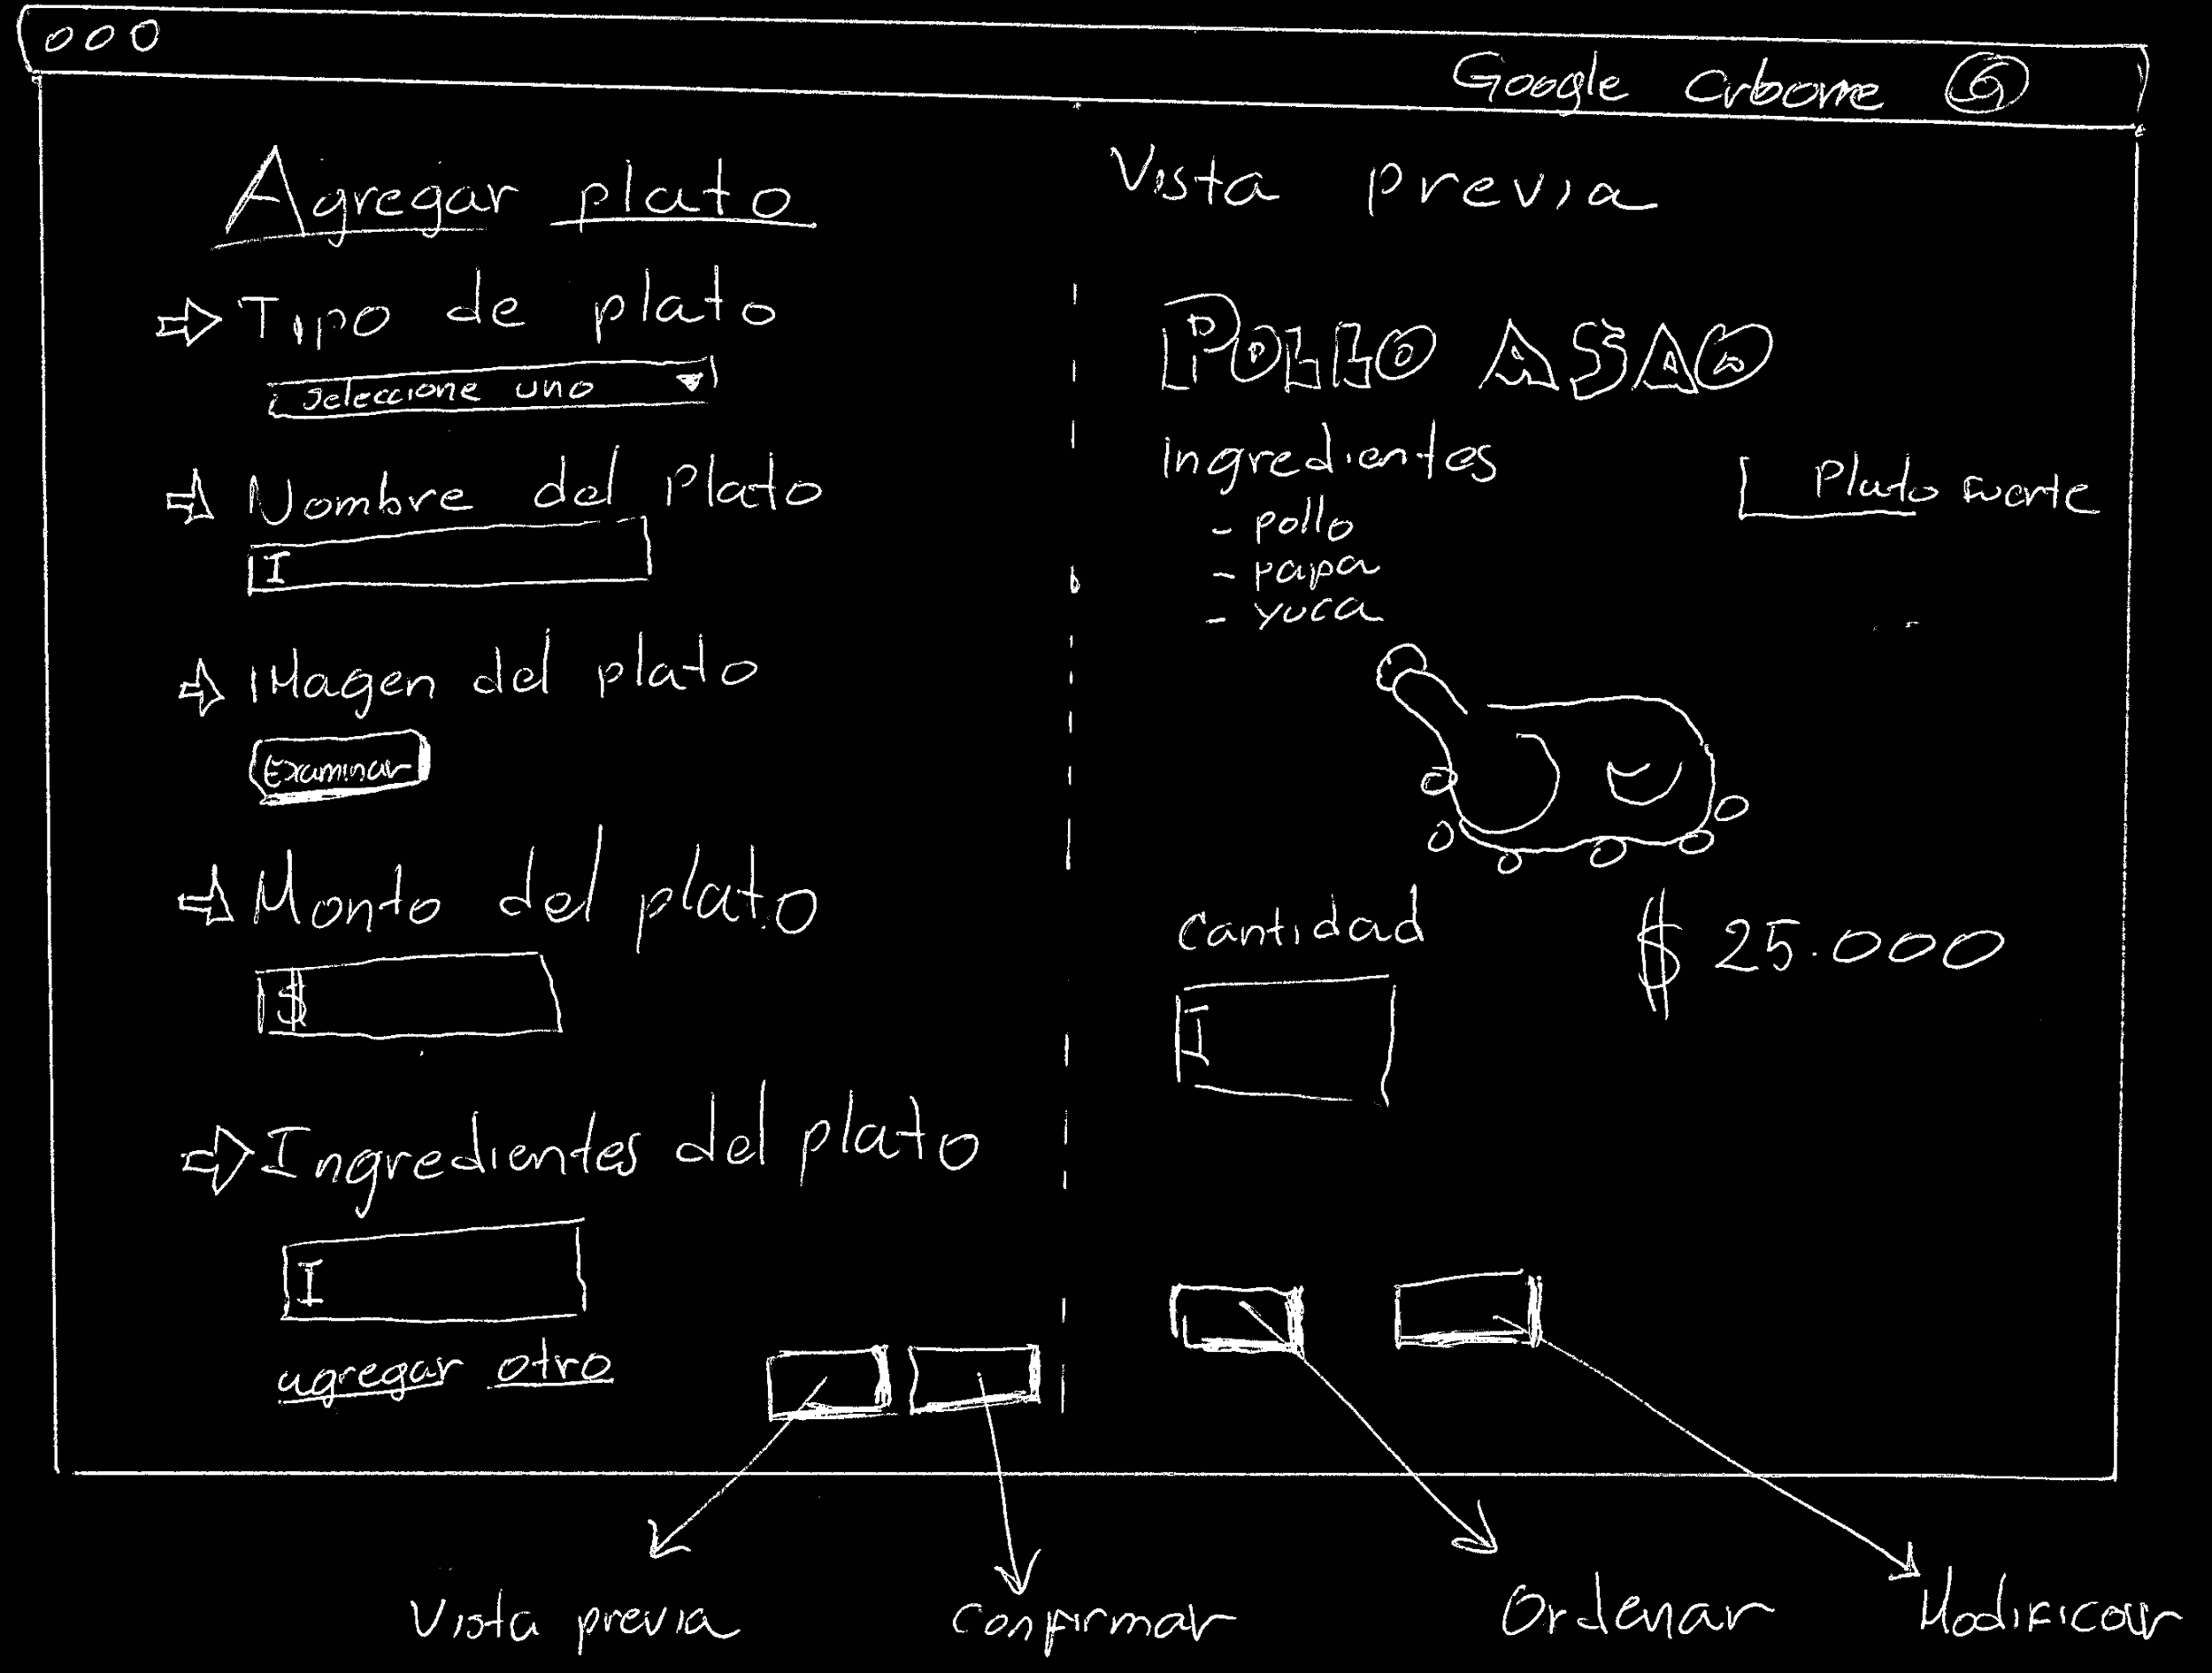 Google Crborne G
Agregar plato
Tipo de plato
Seleccione uno
Nombre del Plato
I
IMagen del plato
Examinar
Monto del plato
$
Ingredientes del plato
I
agregar otro
Vista previa
POLLO ASAO
Ingredientes
Plato Fuerte
- pollo
- papa
- yuca
Cantidad
$ 25.000
I
Vista previa
Confirmar
Ordenar
Modificar